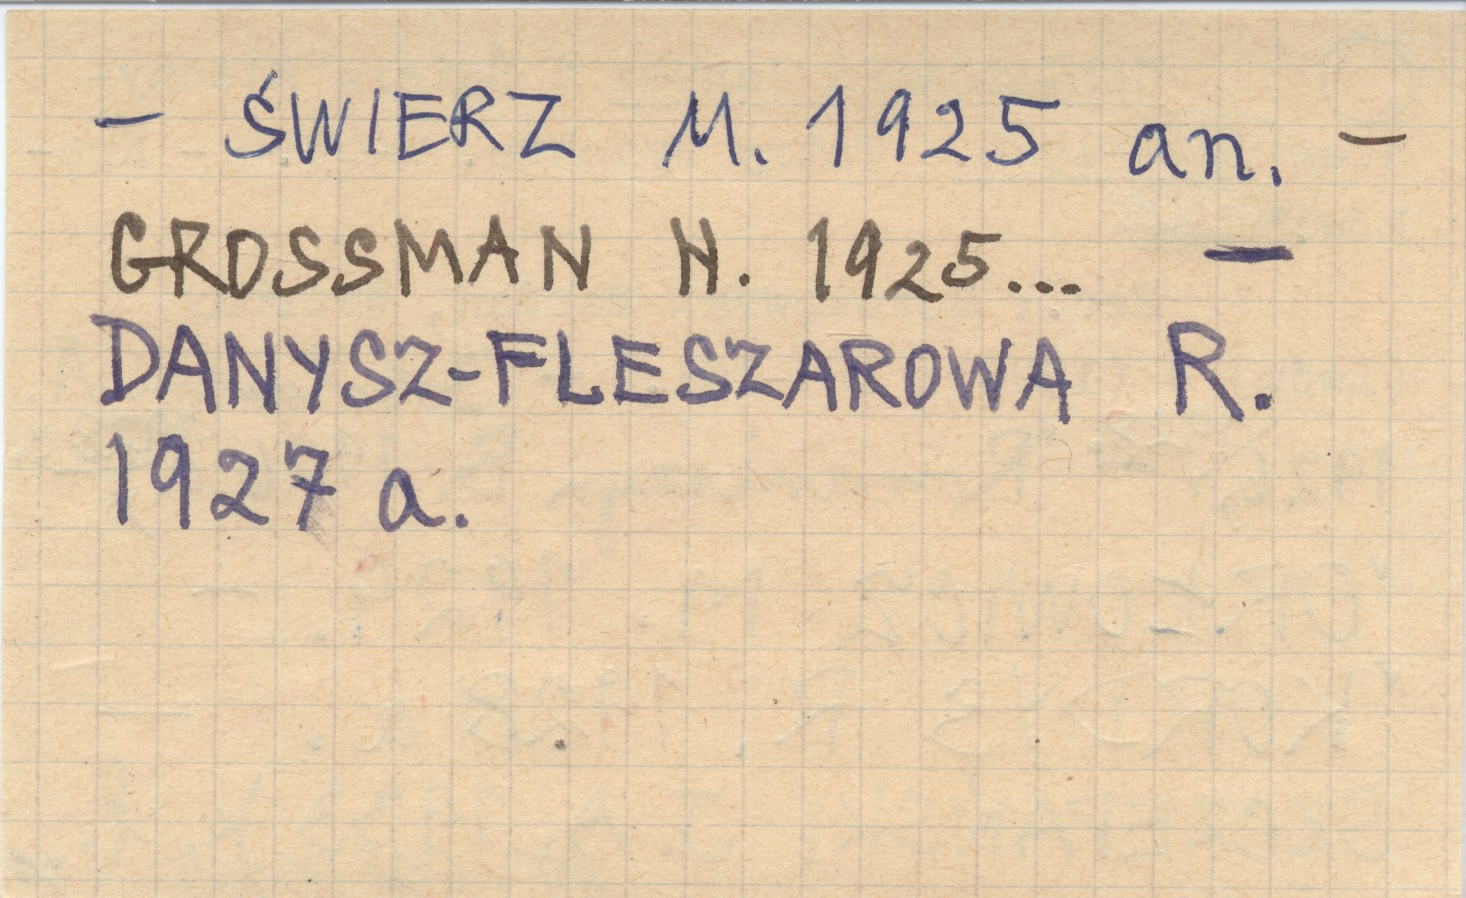 – ŚWIERZ M. 1925 an. –
GROSSMAN H. 1925... –
DANYSZ-FLESZAROWA R.
1927 a.